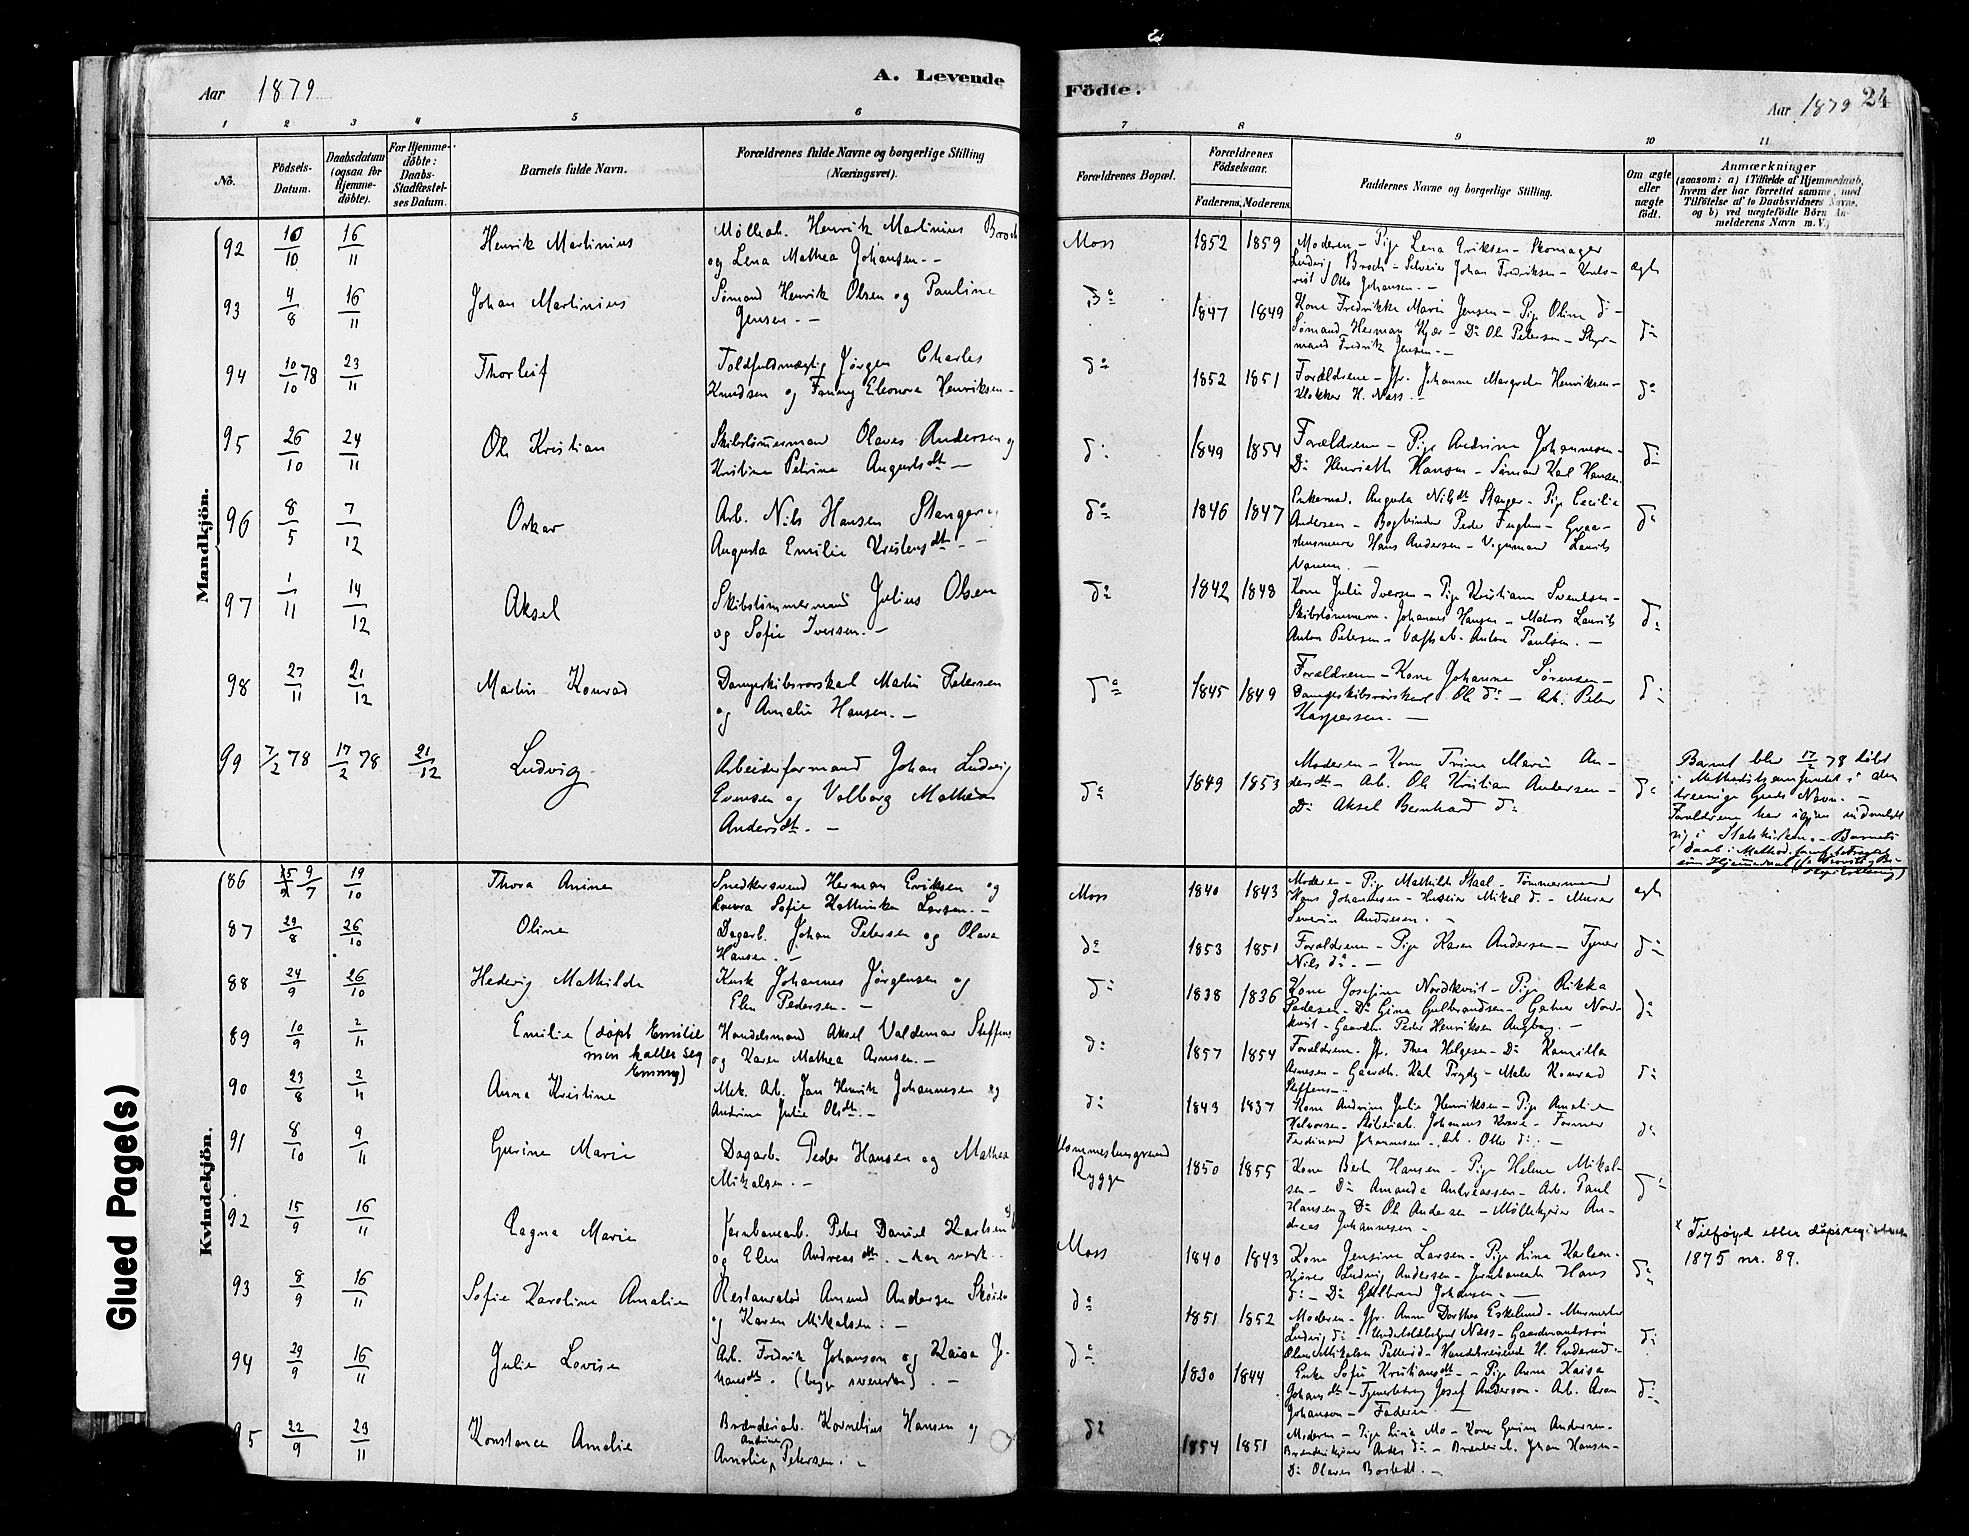 Aar 1879
A. Levende
Födte.
Aar 1879 24
1 2 3 4 5 6 7 8 9 10 11
No.
Födsels-
Datum.
Daabsdatum
(ogsaa for
Hjemme-
döbte).
For Hjemme-
döbte:
Daabs-
Stadfæstel-
ses Datum.
Barnets fulde Navn.
Forældrenes fulde Navne og borgerlige Stilling
(Næringsvei).
Forældrenes Bopæl.
Forældrenes
Födselsaar.
Faderens. Moderens.
Faddernes Navne og borgerlige Stilling.
Om ægte
eller
uægte
födt.
Anmærkninger
(saasom: a) i Tilfælde af Hjemmedaab,
hvem der har forrettet samme, med
Tilföielse af to Daabsvidners Navne,
og b) ved uægtefödte Börn An-
melderens Navn m. V.)
Mandkjön.
92 10/10 16/11 Henrik Martinius
Mølleab. Henrik Martinius
og Lena Mathea Johansen.
Moss 1852 1859
Moderen - Pige Lena Eriksen - Skomager
Ludvig - Johan Fredriksen -
Otto Johansen. -
ægte
93 4/8 16/11 Johan Martinius
Sømand Henrik Olsen og Pauline
Jensen. -
Do 1847 1849
Kone Fredrikke Marie Jensen - Pige Oline do -
Sømand Herman Kjær - Do Ole Petersen - Styr-
mand Fredrik Jensen. -
do
94 10/10 78 23/11 Thorleif
Toldfuldmægtig Jørgen Charles
Knudsen og Fanny Eleonora Henriksen -
do 1852 1851
Forældrene - Jfr. Johanne Margrethe Henriksen -
Klokker H. Næss. -
do
95 26/10 24/11 Ole Kristian
Skibstømmermand Olaves Andersen og
Kristine Petrine Augustsdtr -
do 1849 1854
Forældrene - Pige Andrine Johannesen -
Do Henriette Hansen - Sømand Karl Hansen.
do
96 8/5 7/12 Oskar
Arb. Nils Hansen Stanger og
Augusta Emilie Kristensdtr. -
do 1846 1847
Augusta Nilsdtr Stanger - Pige Cecilia
Andersen - Bogbinder Peder Fuglem -
Hans Andersen - Vognmand Laurits
do
97 1/11 14/12 Aksel
Skibstømmermand Julius Olsen
og Sofie Iversen. -
do 1842 1848
Kone Julie Iversen - Pige Kristiane Svendsen -
Skibstømmerm. Johannes Hansen - Matros Laurits
Anton Petersen - Anton Paulsen. -
do
98 27/11 21/12 Martin Konrad
Martin Petersen
og Amalie Hansen. -
do 1845 1849
Forældrene - Kone Johanne Sørensen -
Ole do - Arb. Peter
Kaspersen. -
do
99 7/2 78 17/2 78 21/12 Ludvig
Arbeiderformand Johan Ludvig
Evensen og Valborg Mathea
Andersdtr. -
do 1849 1853
Moderen - Kone Trine Marie An-
dersdtr - Arb. Ole Kristian Andersen -
Do Aksel Bernhard do
do
Barnet blev 17/2 78 døbt
i Methodistsamfundet i den
treenige Guds Navn. -
Forældrene har igjen indmeldt
sig i Statskirken. - Barnets
Daab i Methodistsamf. betragtet
som Hjemmedaab
Kvindekjön.
86 9/7 19/10 Thora Anine
Snedkersvend Herman Eriksen og
Sofie Kathinka Larsen. -
Moss 1840 1843
Moderen - Pige Mathilde Staal - Tømmermand
Hans Johannesen - Huseier Mikal do - Murer
Severin Andresen. -
ægte
87 29/8 26/10 Oline
Dagarb. Johan Petersen og Olava
Hansen. -
do 1853 1851
Forældrene - Pige Karen Andersen - Tjener
Nils do. -
do
88 24/9 26/10 Hedevig Mathilde
Kusk Johannes Jørgensen og
Elen Pedersen. -
do 1838 1836
Kone Josefine Nordkvist - Pige Rikka
Pedersen - Do Gina Gulbrandsen - Garver Nord-
kvist - Gaardbr. Peder Henriksen
do
89 10/9 2/11 Emilie (døpt Emilie
men kaller seg
Emmy)
Handelsmand Aksel Valdemar Steffens
og Karen Mathea Arnesen. -
do 1857 1854
Forældrene. Jfr. Thea Helgesen - Do Kamilla
Arnesen - Gaardb. Karl Prydz - Maler Konrad
Steffens. -
do
90 23/8 2/11 Anna Kristine
Mek. Arb. Jan Henrik Johannesen og
Andrine Julie Olsdtr. -
do 1843 1837
Kone Andrine Julie Henriksen - Pige Amalie
Halvorsen - Johannes - Former
Ferdinand Johannesen - Arb. Otto do. -
do
91 8/10 9/11 Gurine Marie
Dagarb. Peder Hansen og Mathea
Mikalsen. -
Rygge 1850 1855
Kone Berte Hansen - Pige Helene Mikal-
sen - Do Amanda Andreassen - Arb. Paul
Hansen - Do Ole Andersen - Møllekjører An-
dreas Johannesen -
do
92 15/9 16/11 Ragna Marie
Jernbanearb. Peter Daniel Karlsen x)
og Elen Andreasdtr. - han svensk.
Moss 1840 1843
Kone Jensine Larsen - Pige Lina Karlsen -
Kjører Ludvig Andersen - Jernbanearb Hans
do - Do Gulbrand Johansen. -
do
x Tilføyd etter døpsregisteret
1875 nr. 89.
93 8/9 16/11 Sofie Karoline Amalie
Restauratør Amund Andersen
og Karen Mikalsen. -
do 1851 1852
Moderen - Jfr. Anne Dorthea Eskelund - Murmester
Ludvig do - Næss - Gaardmandssøn
Mikalsen - Handelsreisende H.
do
94 29/9 16/11 Julie Lovise
Arb. Fredrik Johanson og Kaisa Jo-
hansdtr. (begge svenske). -
do 1830 1844
Enke Sofie Kristiansdtr. - Pige Anna Kaisa
Johansdtr - Josef Anderson - Arb. Aron
Johanson - Faderen. -
do
95 22/9 23/11 Konstance Amalie
Brænderiab. Kornelius Hansen og
Amalie Andrine Petersen. -
do 1854 1851
Moderen - Pige Lina Mo - Kone Gurine Andersen -
Anders do - Brænderiab. Johan Hansen -
Do Olaves Bostedt. -
Glued Page(s)